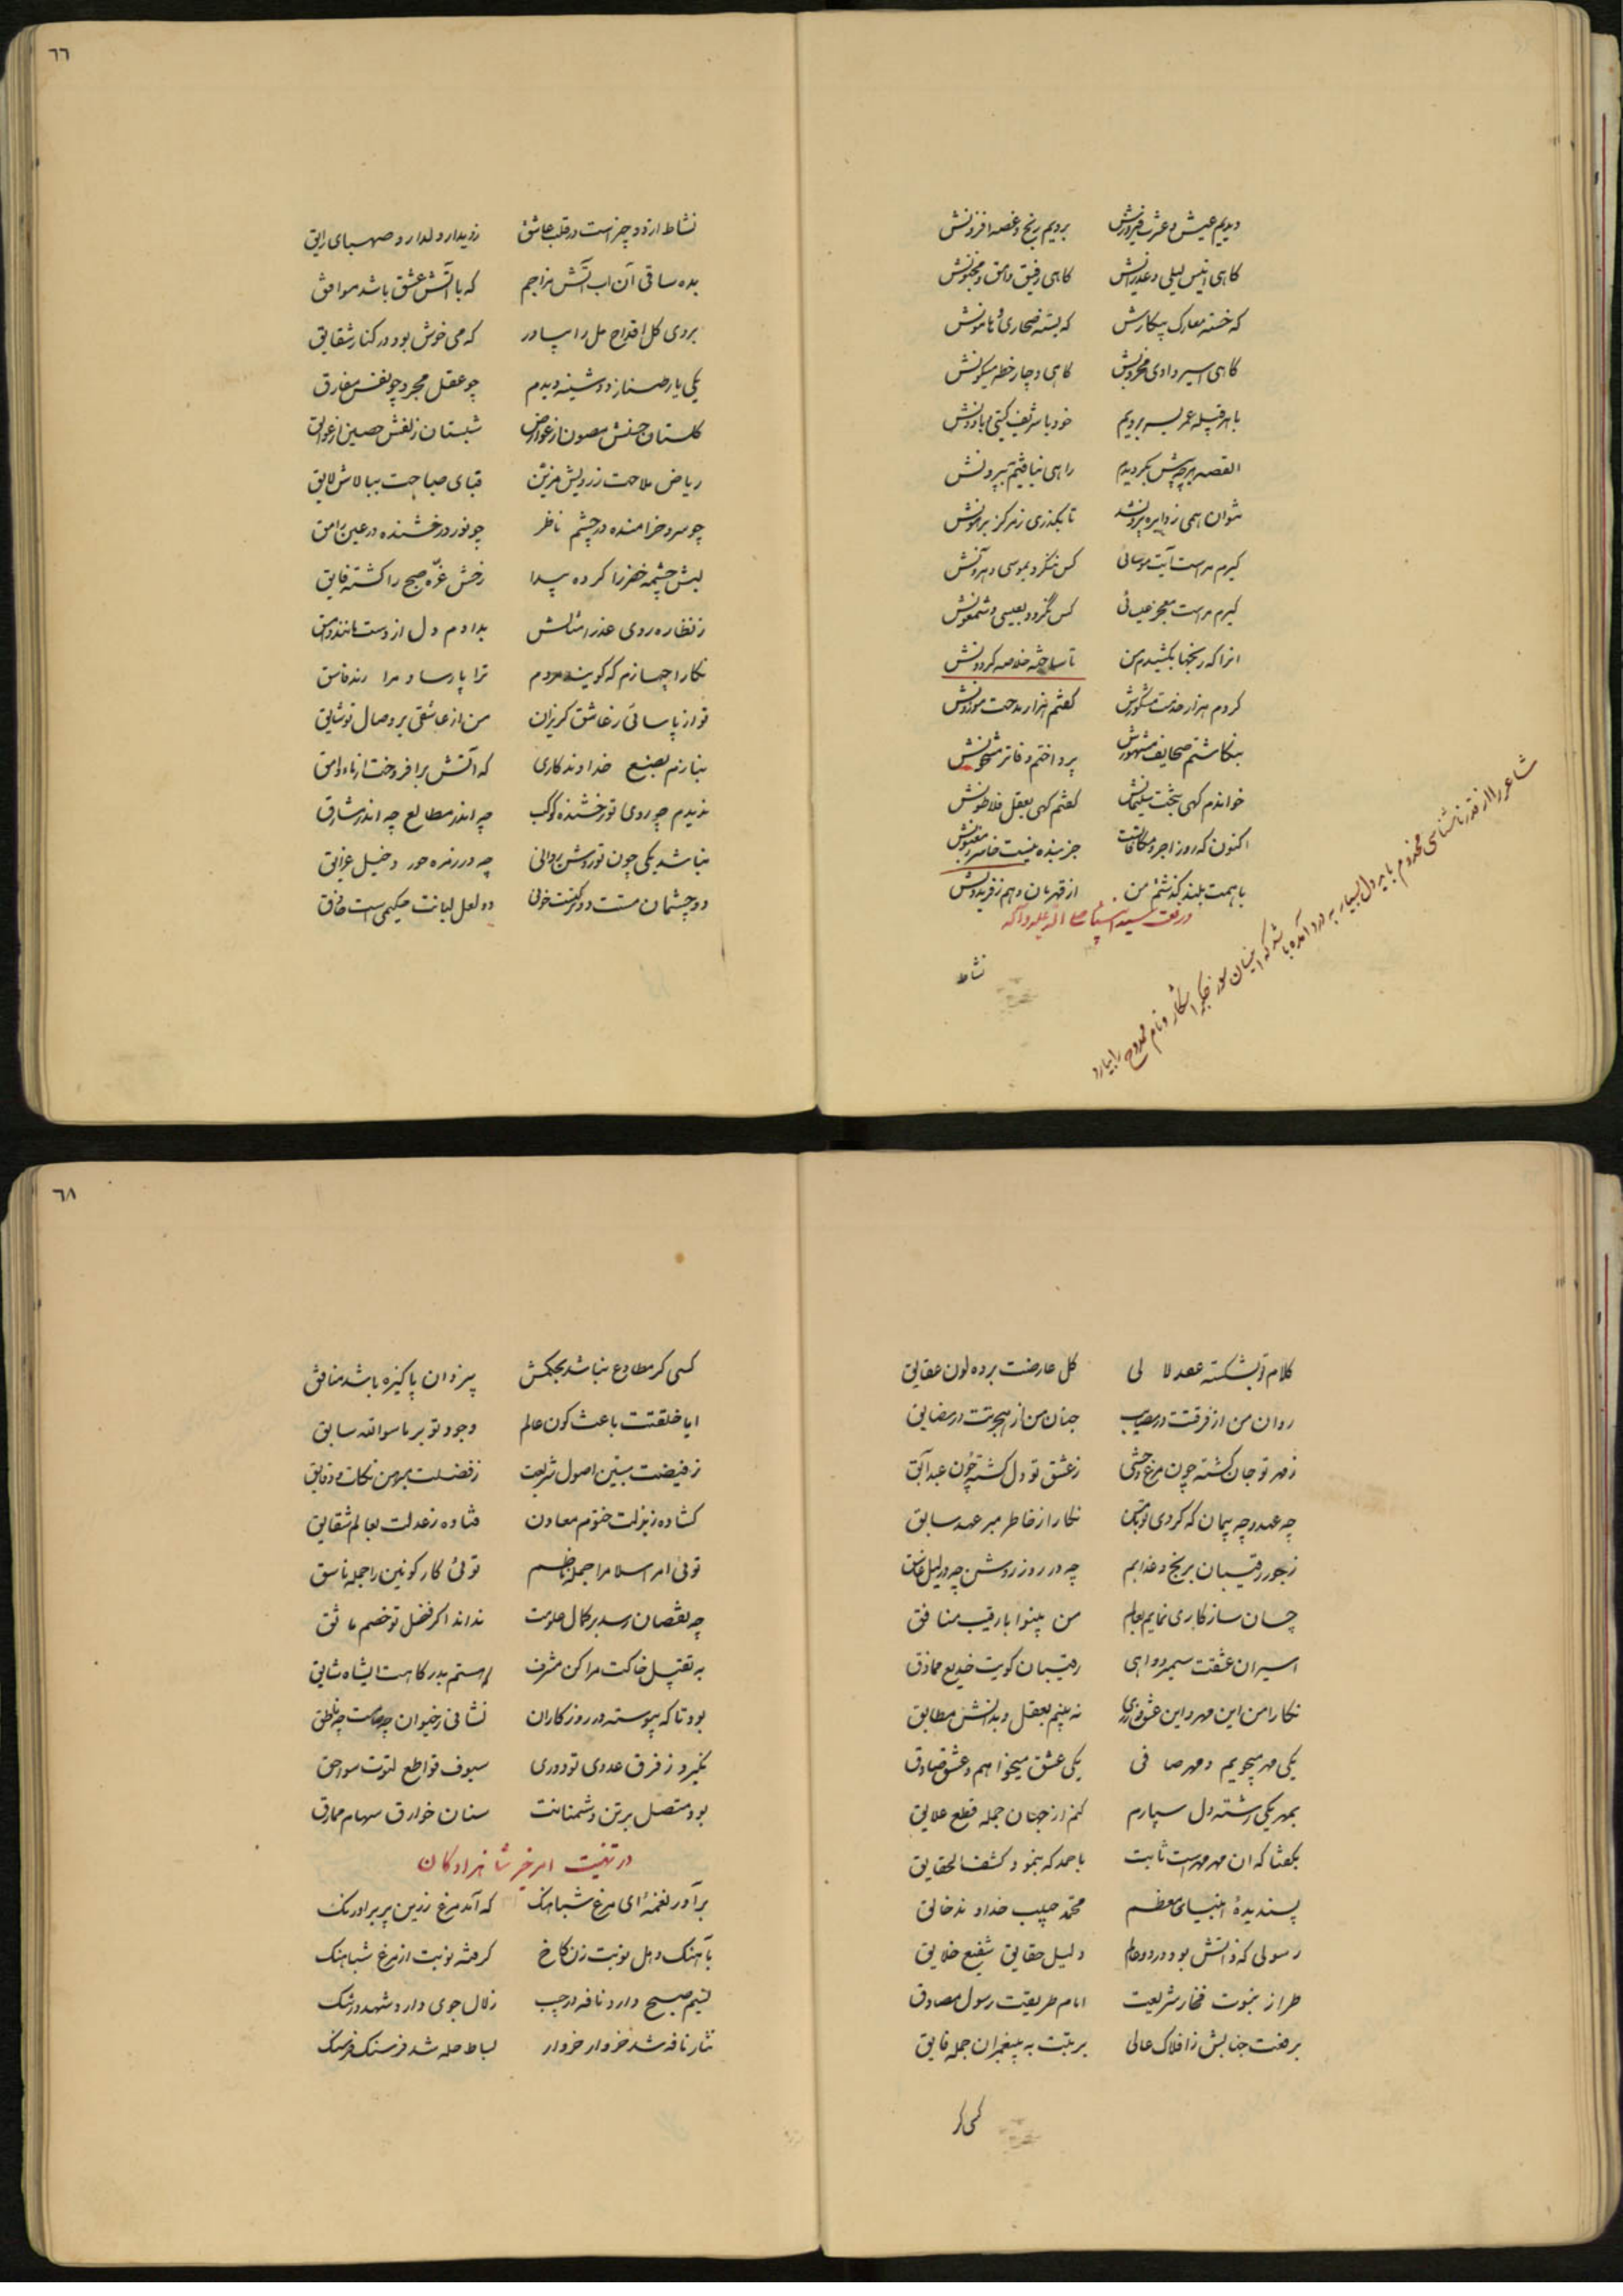 دیدیم عیش و عشرت فیروزش بردیم رنج و غصه افزونش
کاهی انیس لیلی و عذرایش کاهی رفیق وامق و مجنونش
که خسته معارک پیکارش که بسته صحاری و هامونش
کاهی اسیر وادی کاهی دچار خطه
با هر قبیله عمر بسر بردیم خود با شریف کیتی و با دونش
القصه هر چه پیش بکردیدم راهی نیافتیم به بیرونش
نتوان همی ز دایره بیرون شد تا بگذری ز مرکز پرامونش
کیرم مراست آیت موسائی کس ننکرد بموسی و هرونش
کیرم مراست معجز عیسائی کس نکرود بعیسی و شمعونش
انرا که رنجها بکشیدم من تا ساختم خلاصه کردونش
کردم هزار خدمت مشکورش کفتم هزار مدحت موزونش
بنکاشتم صحایف مشهورش پرداختم دفاتر مشحونش
خواندم کهی ببخت سلیمانش کفتم کهی بعقل فلاطونش
اکنون که روز اجر و مکافات جز بنده نیست خاسر و مغبونش
با همت بلند کذشتم من از قهرمان و هم ز فریدونش
در نعت سید انبیا صلی الله علیه و آله
شاعر را از قدر ناشناسی مخدوم باید دل بسیار به درد آمده باشد که اینسان سوز جکر آشکار و نام ممدوح را نیارد
نشاط
٦٦
نشاط از دو چیز است در قلب عاشق ز دیدار دلدار و صهبای رایق
بده ساقی آن اب آتش مزاجم که با آتش عشق باشد موافق
بروی کل اقداح مل را بیاور که می خوش بود در کنار شقایق
یکی یار طناز دوشینه دیدم چو عقل مجرد چو نفس مفارق
کلستان حسنش مصون از عوارض شبستان زلفش حصین از عوایق
ریاض ملاحت ز رویش مزین قبای صباحت ببالاش لایق
چو سرو خرامنده در چشم ناظر چو نور درخشنده در عین رامق
لبش چشمه خضر را کرده پیدا رخش غرّه صبح را کشته فایق
ز نظاره روی عذرا مثالش بدادم دل از دست مانند وامق
نکارا چسازم که کویند مردم ترا پارسا و مرا رند فاسق
تو از پارسائی ز عاشق کریزان من از عاشقی بر وصال تو شایق
بنازم بصنع خداوندکاری که آتش برافروخت از ماء دافق
ندیدم چو روی تو رخشنده کوکب چه اندر مطالع چه اندر مشارق
نباشد یکی چون تو روشن روانی چه در زمره حور و خیل غرانق
دو چشمان مستت دو ترکست خونی دو لعل لبانت حکیمی است حاذق
کلام تو بشکسته عقد لالی کل عارضت برده لون عقایق
روان من از فرقتت در مصایب جنان من از هجرتت در مضایق
ز مهر تو جان کشته چون مرغ وحشی ز عشق تو دل کشته چون عبد آبق
چه عهد و چه پیمان که کردی تو با من نکارا ز خاطر مبر عهد سابق
ز جور رقیبان برنج و عذابم چه در روز روشن چه در لیل غاسق
چسان سازکاری نمایم بعالم من بینوا با رقیب منافق
اسیران عشقت رقیبان کویت خدیع مماذق
نکارا من این مهر و این عشق نه بینم بعقل و بدانش مطابق
یکی مهر میجویم و مهر صافی یکی عشق میخواهم و عشق صادق
بمهر یکی رشته دل سپارم کنم از جهان جمله قطع علایق
بکفتا که ان مهر مهر است ثابت باحمد که بنمود کشف الحقایق
پسندیدهٔ انبیای معظم محمّد حبیب خداوند خالق
رسولی که ذاتش بود در دو عالم دلیل حقایق شفیع خلایق
طراز نبوت فخار شریعت امام طریقت رسول مصادق
برفعت جنابش ز افلاک عالی برتبت به پیغمبران جمله فایق
کسی کر
٦٨
کسی کر مطاوع نباشد بحکمش بیزدان پاکیزه باشد منافق
ایا خلقتت باعث کون عالم وجود تو بر ما سوا الله سابق
ز فیضت مبین اصول شریعت ز فضلت مبرهن نکات دقایق
کشاده ز بذلت ختوم معادن فتاده ز عدلت بعالم شقایق
توئی امر اسلام را جمله ناظم توئی کار کونین را جمله ناسق
چه نقصان رسد بر کمال علومت نداند اکر فضل تو خصم مائق
به تقبیل خاکت مرا کن مشرف که هستم بدرکاهت ایشاه شایق
بود تا که پیوسته در روزکاران نشانی ز حیوان چه صامت چه ناطق
نکیرد ز فرق عدوی تو دوری سیوف قواطع لتوت سواحق
بود متصل بر تن دشمنانت سنان خوارق سهام موارق
در تهنیت امر خیر شاهزادکان
برآور نغمهٔ ای مرغ شباهنک که آمد مرغ زرین پر بر اورنک
بآهنک دهل نوبت زن کاخ کرفته نوبت از مرغ شباهنک
نسیم صبح دارد نافه در جیب زلال جوی دارد شهد در تنک
نثار نافه شد خروار خروار بساط حله شد فرسنک فرسنک